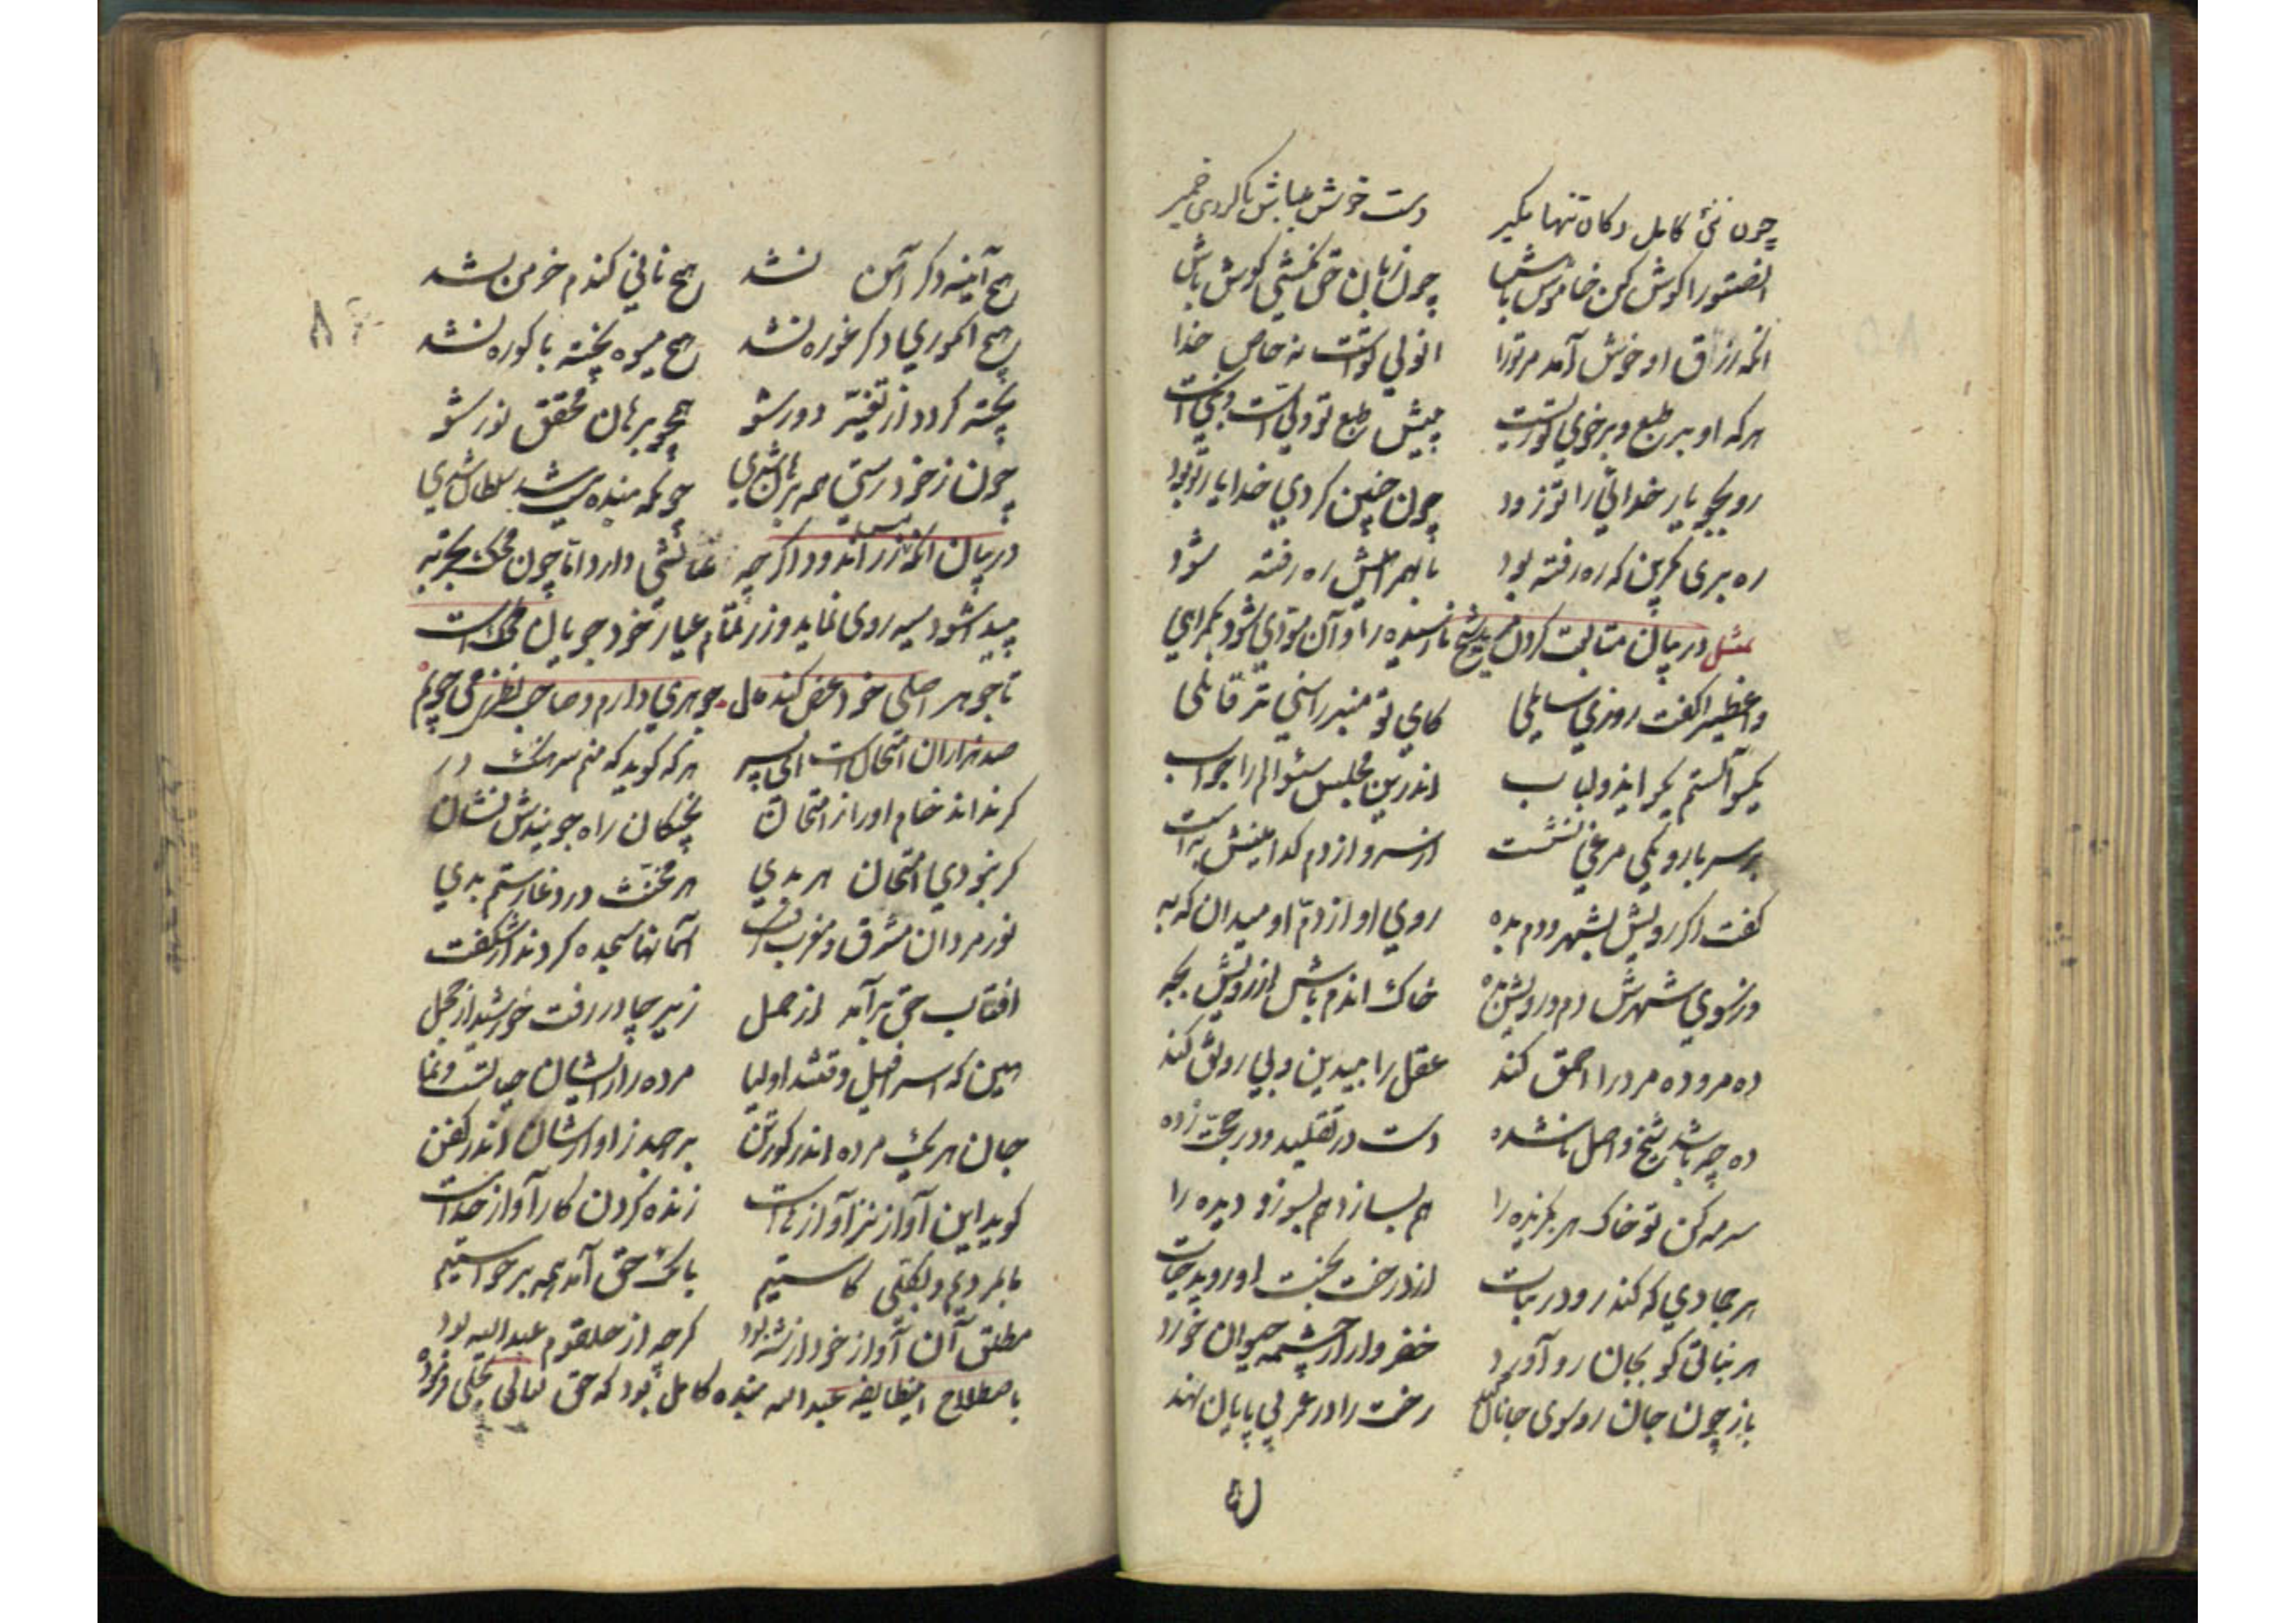 چون نئ کامل دکان تنها مگیر دست خوش میباش تا کردی خمیر
انصتوا را کوش کن خاموش باش چون زبان حق نکشتی کوش باش
انکه رزاق او خوش آمد مر ترا خدا
هر که او بر طبع و بر خوی تو زیست پیش طبع تو ولی است و نبی است
رو بجو یار خدائی را تو زود چون چنین کردی خدا یار تو بود
ره بری بکزین که ره رفته بود تا بهمراهیش ره رفته شود
مثل در بیان متابعت کردن مرید شیخ نارسیده را و آن مودی شود بکمراهی
واعظی را کفت روزی سایلی کای تو منبر را سنی تر قائلی
یکسوالستم بکو ای ذو لباب اندرین مجلس سئوالم را جواب
بر سر بارو یکی مرغی نشست از سر و از دم کدامینش به است
کفت اکر رویش بشهر و دم بده روی او از دم او میدان که به
ور سوی شهرش دم و رویش بده خاک اندم باش از رویش بجه
ده مرو ده مرد را احمق کند عقل را بیدین و بی رونق کند
ده چه باشد شیخ واصل ناشده دست در تقلید و در حجت زده
سرمه کن تو خاک هر بکزیده را هم بسازد هم بسوزد دیده را
هر جمادی که کند رو در نبات از درخت بخت او روید حیات
هر نباتی کو بجان رو آورد خضر وار از چشمه حیوان خورد
باز چون جان رو سوی جانان نهد رخت را در عمر بی پایان نهد
هیچ آینه دکر آهن نشد هیچ نانی کندم خرمن نشد
هیچ انکوری دکر غوره نشد هیچ میوه پخته با کوره نشد
پخته کرد و از تغیر دور شو همچو برهان محقق نور شو
چون ز خود رستی همه برهان شدی چونکه بنده نیست شد سلطان شدی
در بیان انکه مس زر اندود اکرچه نمائشی دارد اما چون بمحک تجربه
پیدا شود سیه روی نماید و زر تمام عیار خود جویان محک است
تا جوهر اصلی خود عرض کند مل جوهری دارم و صاحب نظری می جویم
صد هزاران امتحان است ای پسر هر که کوید که منم سرهنک در
کر نداند خام او را ز امتحان پختکان راه جویندش نشان
کر نبودی امتحان هر بدی هر مخنث در وغا رستم بدی
نور مردان مشرق و مغرب کرفت آسمانها سجده کردند از شکفت
افتاب حق برآمد از حمل زیر چادر رفت خورشید از خجل
هین که اسرافیل وقتند اولیا مرده را ز ایشان حیاتست و نما
جان هر یک مرده اندر کور تن بر جهد ز آواز ایشان اندر کفن
کوید این آواز ز آواز ها است زنده کردن کار آواز خداست
ما بمردیم و بکلی کاستیم بانک حق آمد همه برخواستیم
مطلق آن آواز خود از شه بود کرچه از حلقوم عبدالله بود
باصطلاح این طایفه عبدالله بنده کامل بود که حق تعالی تجلی فرموده